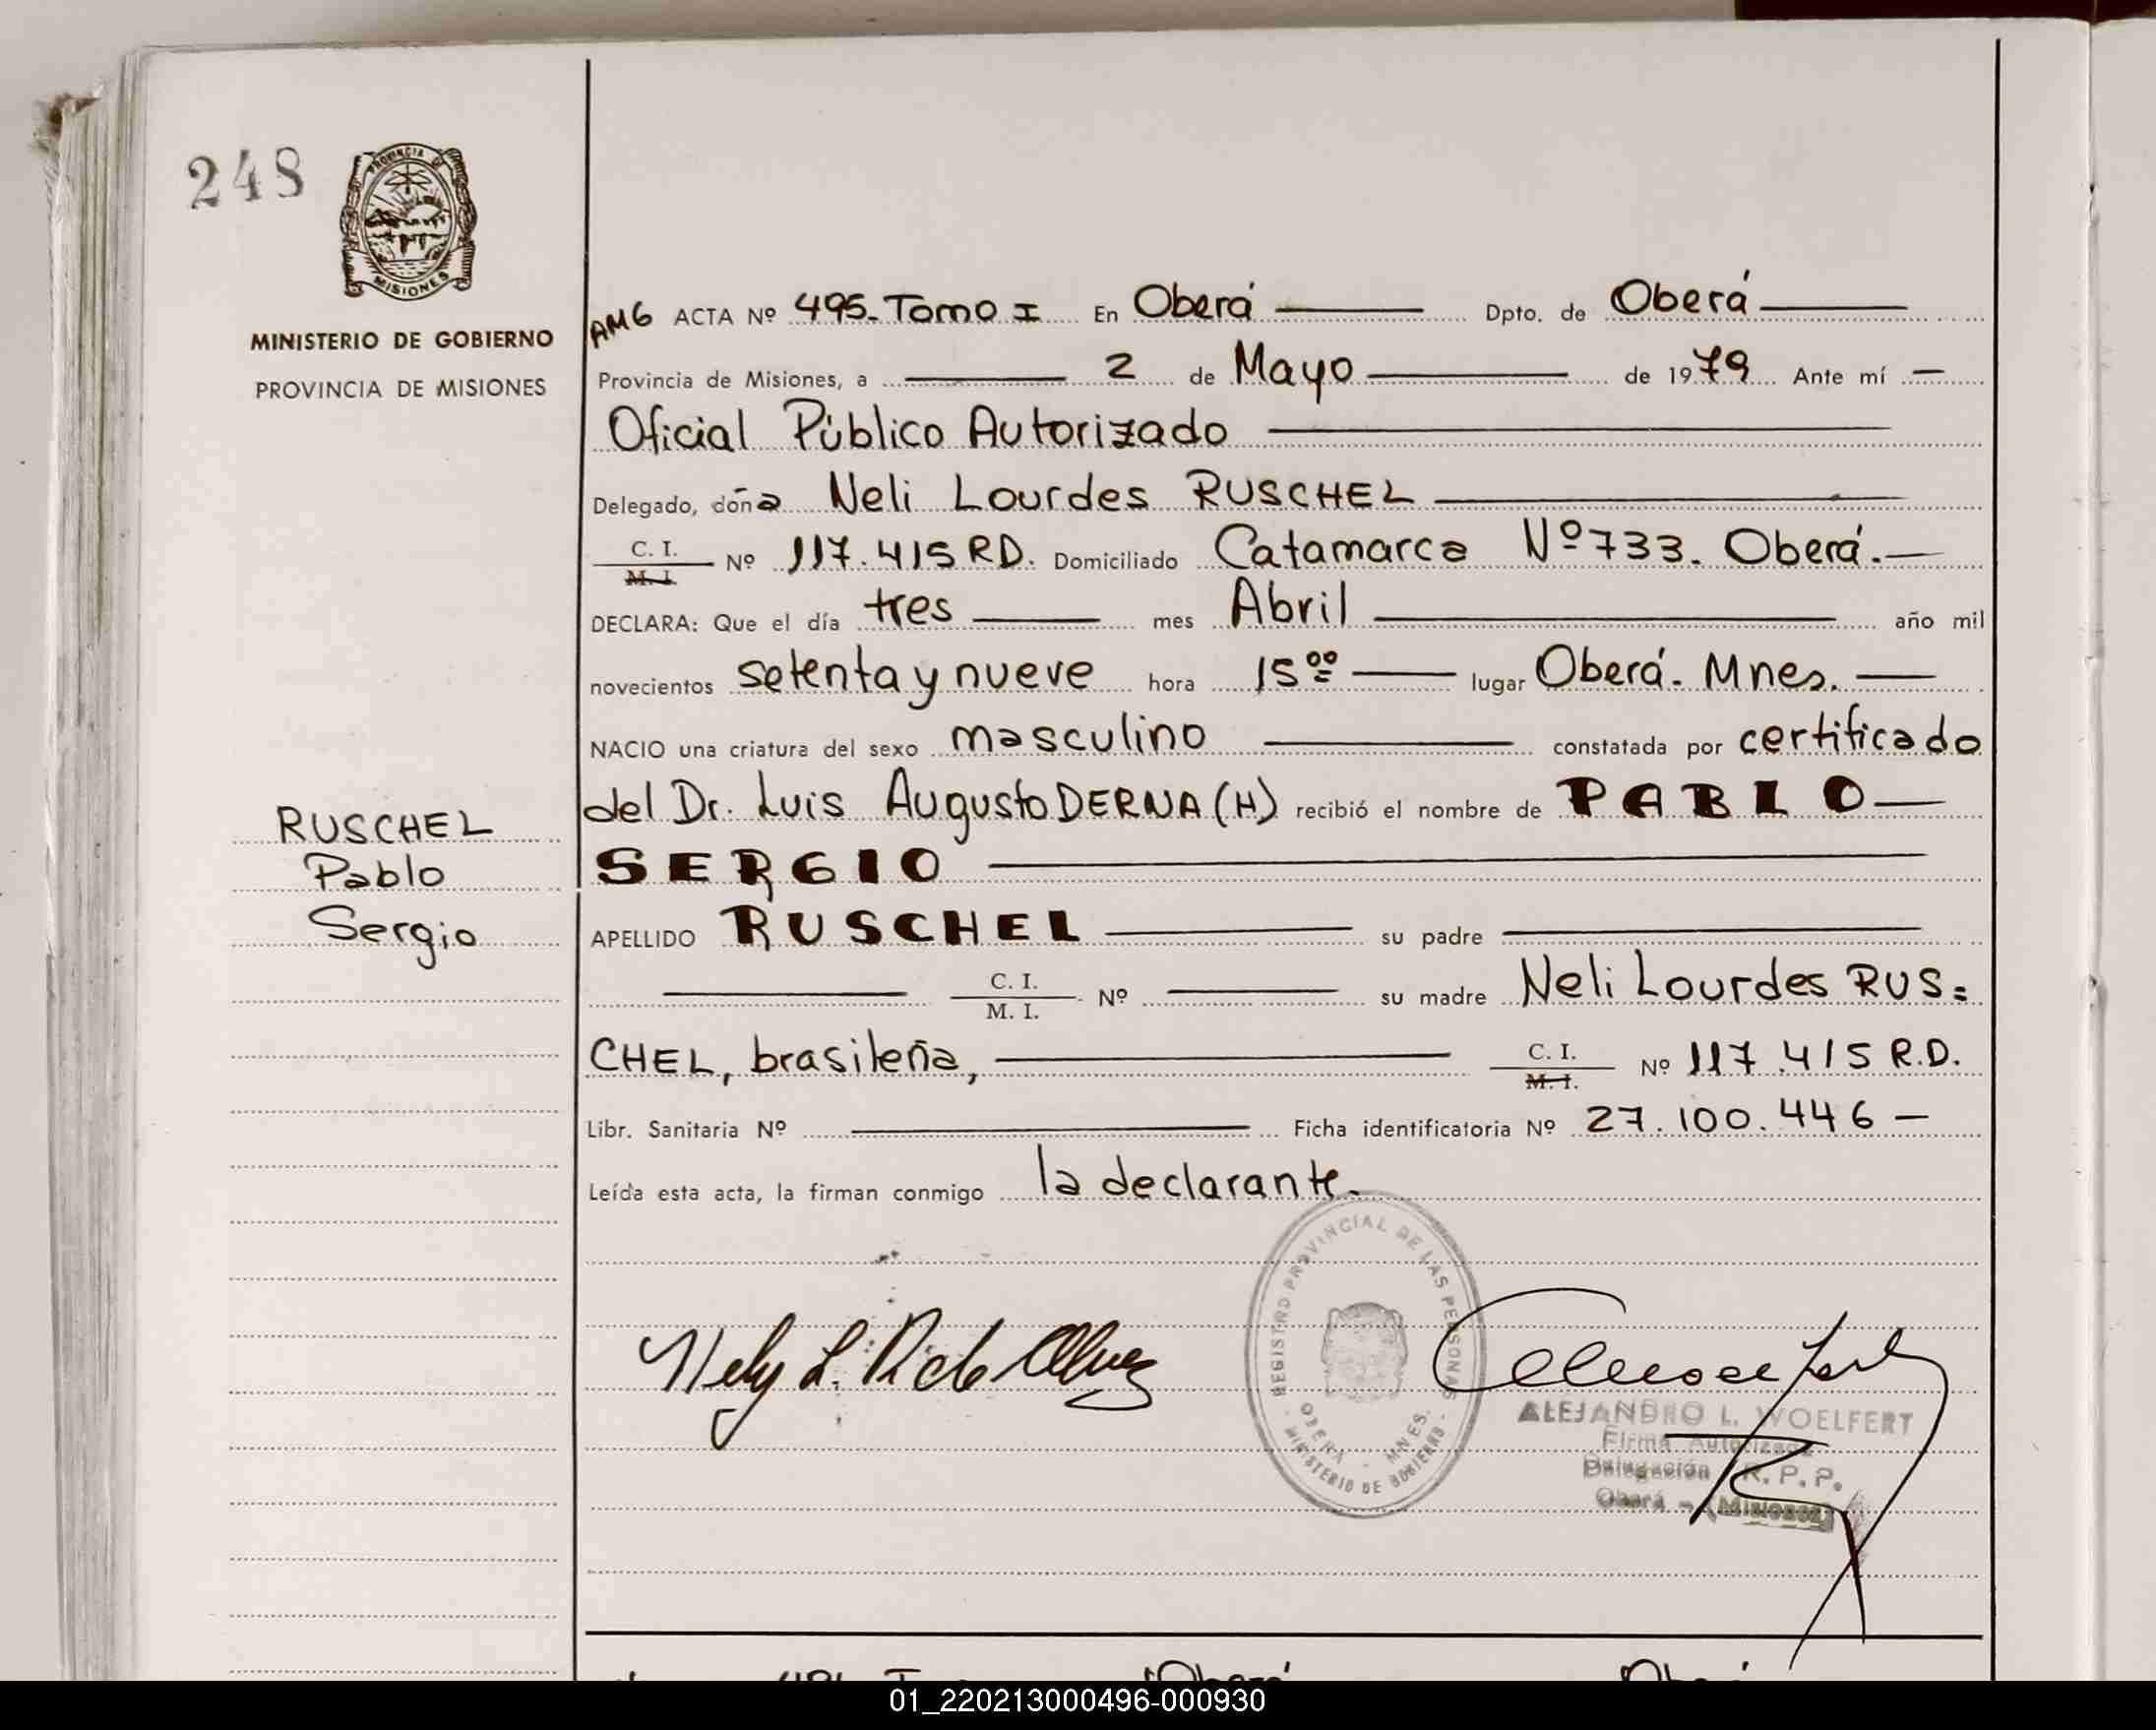 248
PROVINCIA DE
MISIONES
MINISTERIO DE GOBIERNO
PROVINCIA DE MISIONES
AMG ACTA Nº 495. Tomo I En Oberá Dpto. de Oberá
Provincia de Misiones, a 2 de Mayo de 1979 Ante mí
Oficial Público Autorizado
Delegado, doña Neli Lourdes RUSCHEL
C. I.
M. I. Nº 117.415 RD. Domiciliado Catamarca Nº 733. Oberá.
DECLARA: Que el día tres mes Abril año mil
novecientos setenta y nueve hora 15⁰⁰ lugar Oberá. Mnes.
NACIO una criatura del sexo masculino constatada por certificado
del Dr. Luis Augusto DERNA (H) recibió el nombre de PABLO
SERGIO
RUSCHEL
Pablo
Sergio
APELLIDO RUSCHEL su padre
C. I.
M. I. Nº su madre Neli Lourdes RUS=
CHEL, brasileña, C. I.
M. I. Nº 117.415 R.D.
Libr. Sanitaria Nº Ficha identificatoria Nº 27.100.446
Leída esta acta, la firman conmigo la declarante.
REGISTRO PROVINCIAL DE LAS PERSONAS
OBERA - MNES.
MINISTERIO DE GOBIERNO
Nely L. R de
ALEJANDRO L. WOELFERT
Firma Autorizada
Delegación R. P. P.
Oberá - (Misiones)
01_220213000496-000930